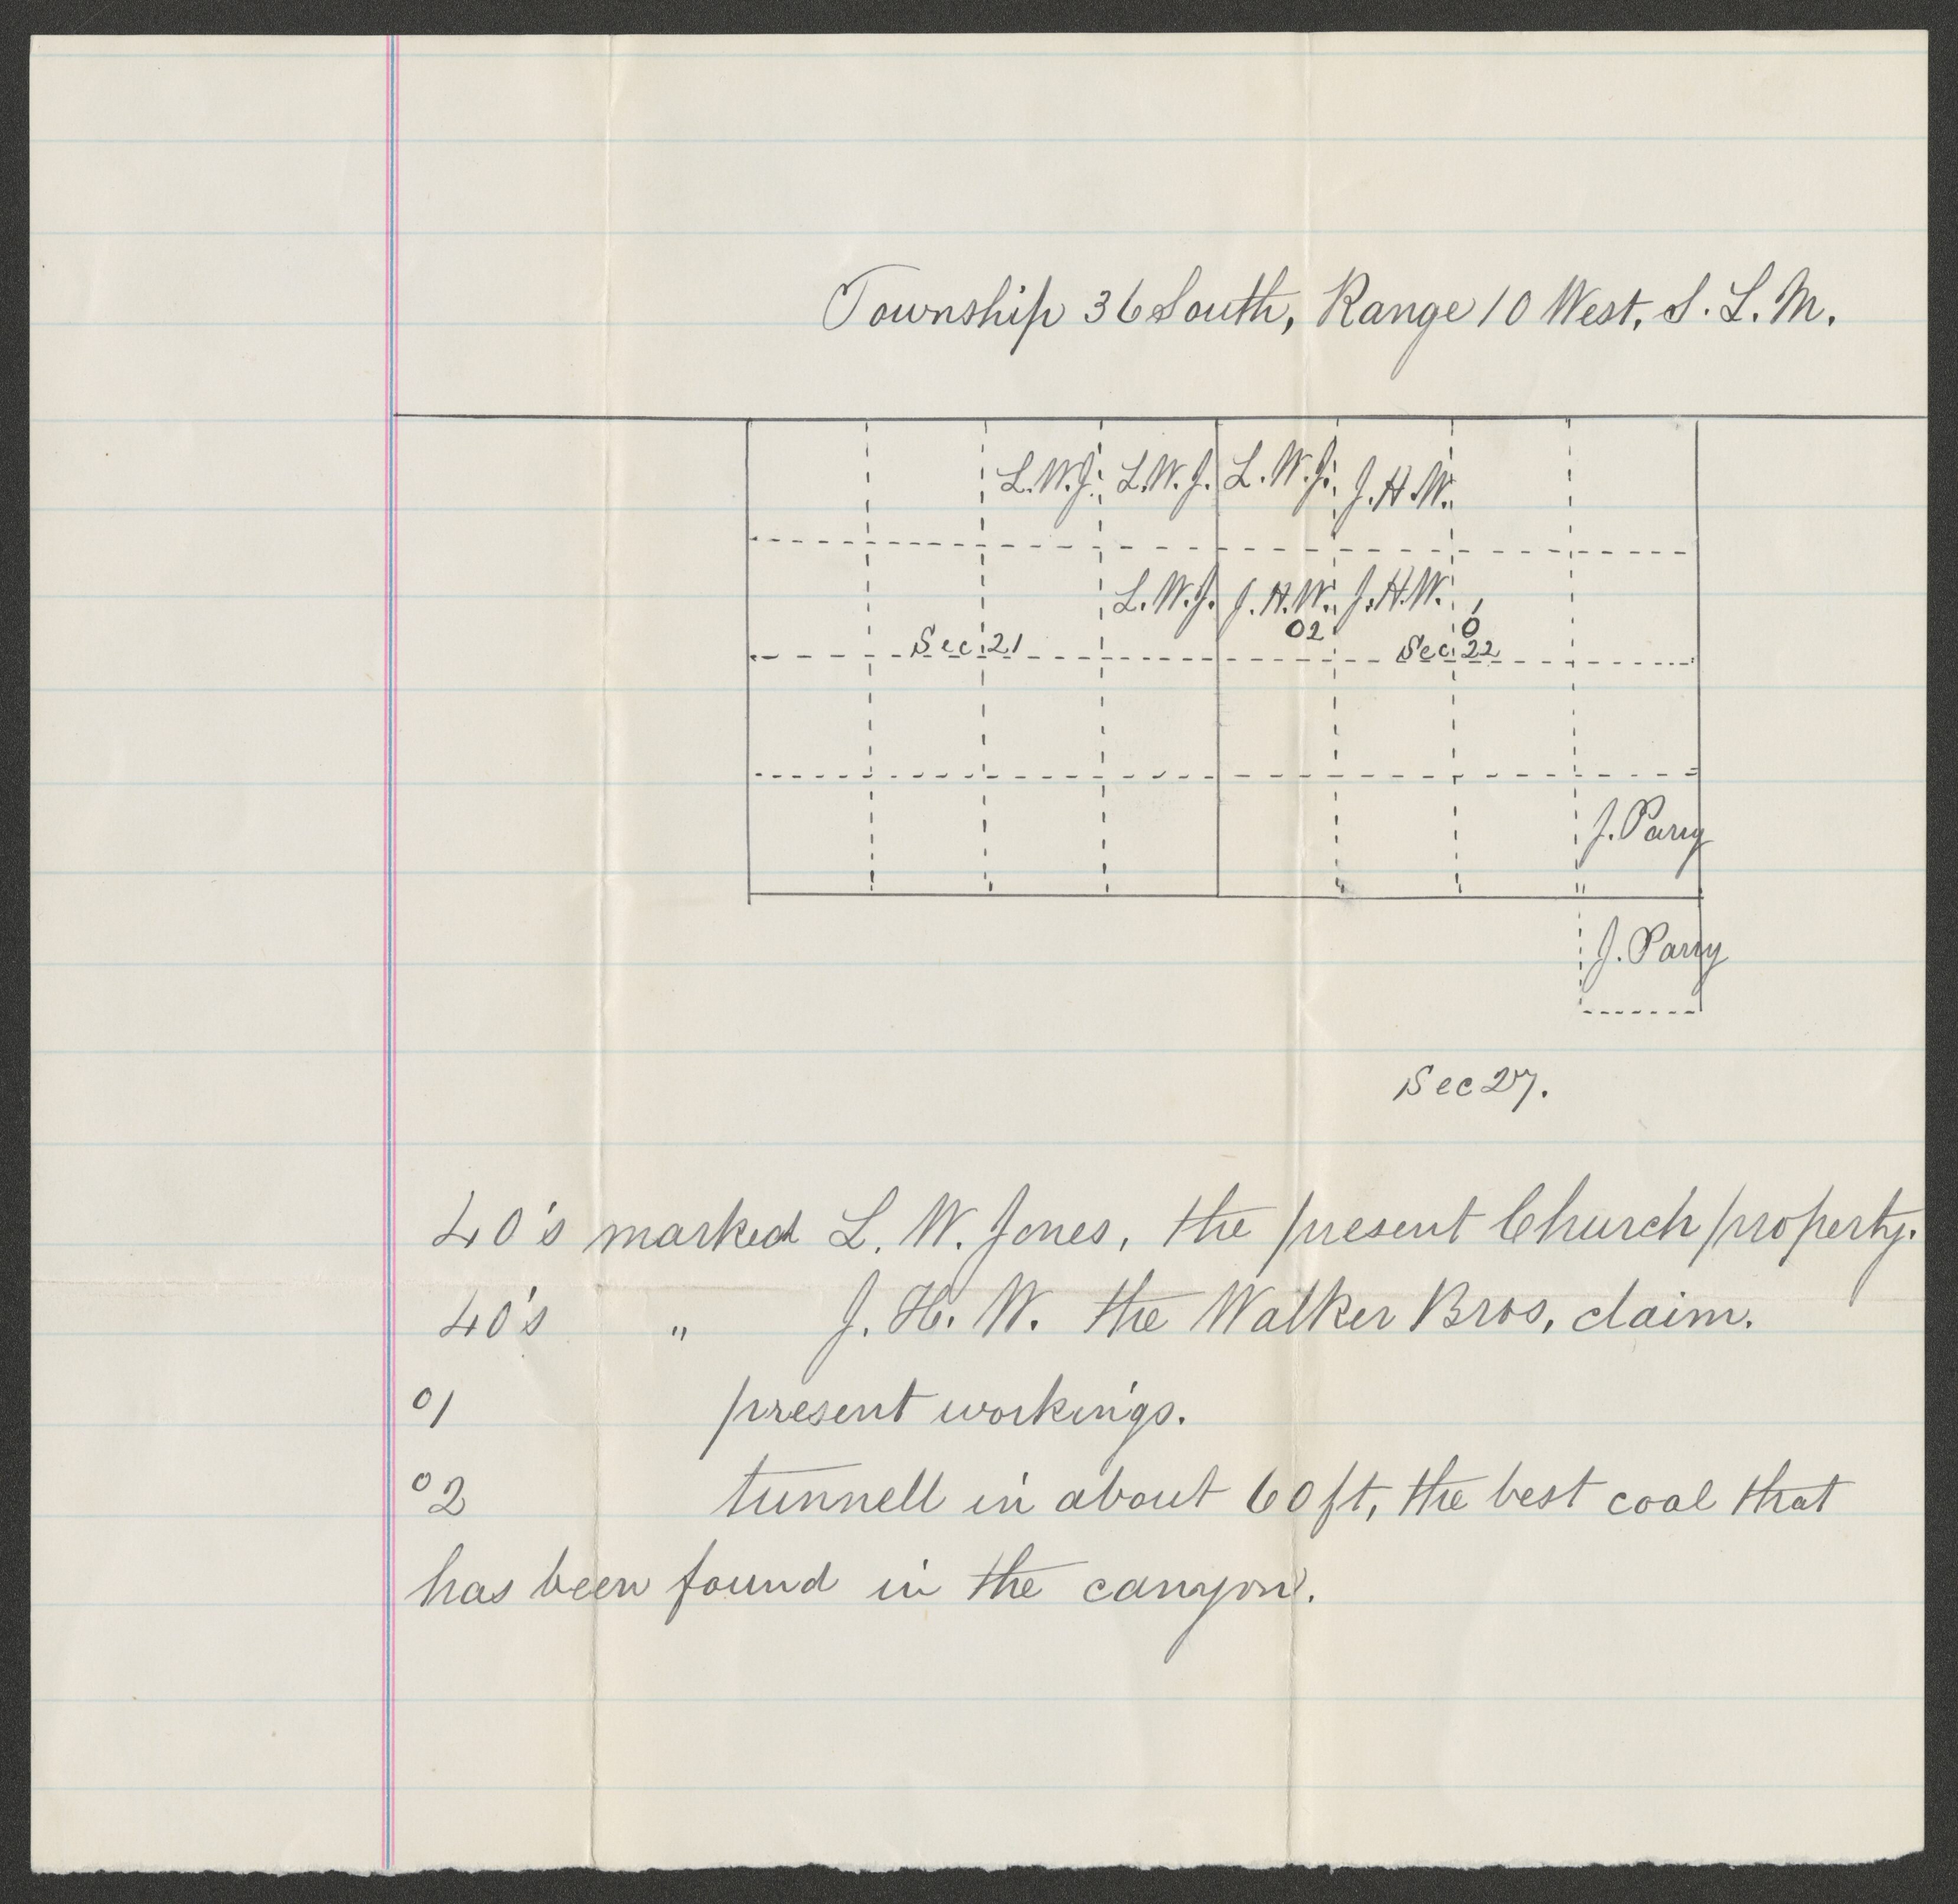 Township 36 South, Range 10 West, S. L. M.
L.W.J. L.W.J. L.W.J. J.H.W.
L.W.J. J.H.W. J.H.W.
02 01
Sec 21 Sec 22
J. Parry
J. Parry
Sec 27.
40's marked L. W. Jones, the present Church property.
40's " J. H. W. the Walker Bros, claim.
01 present workings.
02 tunnell in about 60 ft, the best coal that
has been found in the canyon.